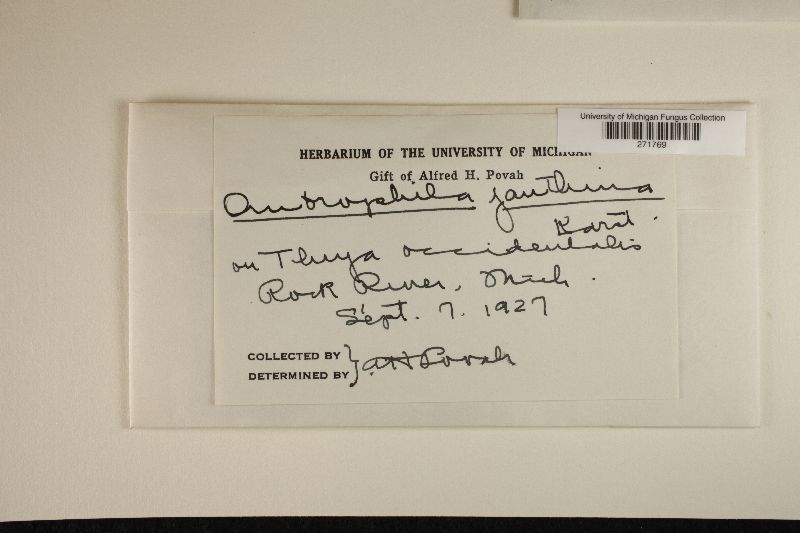 University of Michigan Fungus Collection
271769
HERBARIUM OF THE UNIVERSITY OF MICHIGAN
Gift of Alfred H. Povah
Ombrophila janthina
Karst.
on Thuya occidentalis
Rock River, Mich.
Sept. 7. 1927
COLLECTED BY
DETERMINED BY } AH Povah